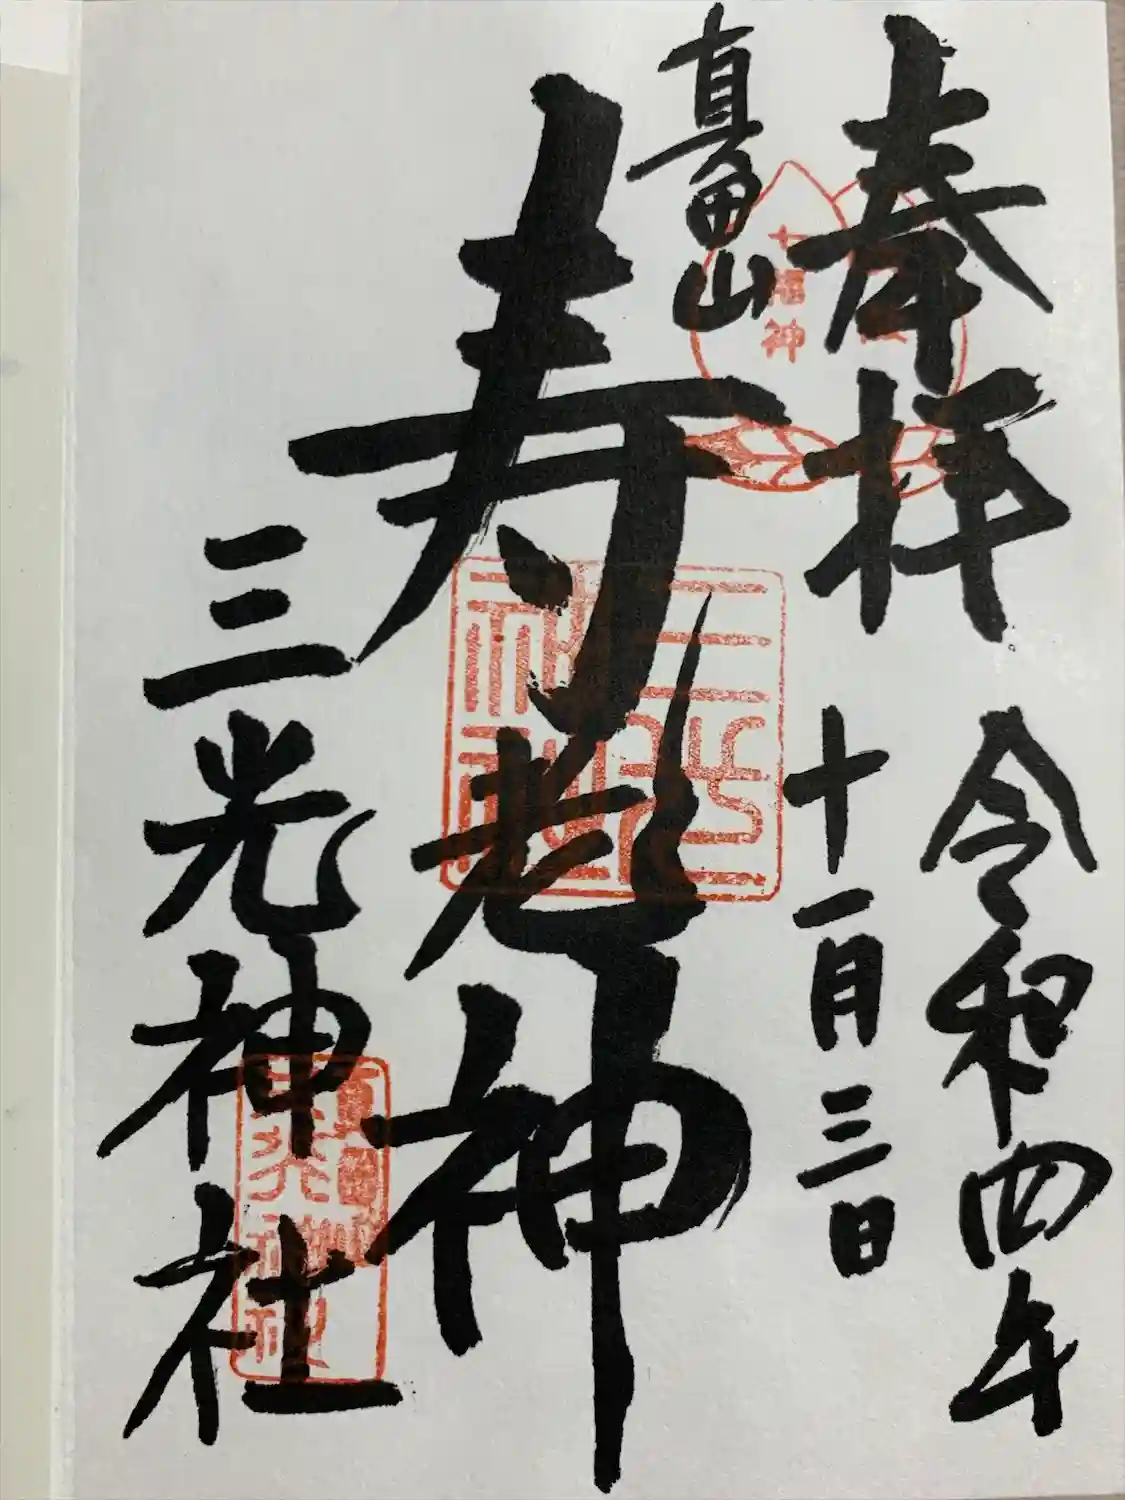 奉拝
令和四年
十一月三日
真田山
寿老神
三光神社
三光神社
七福神